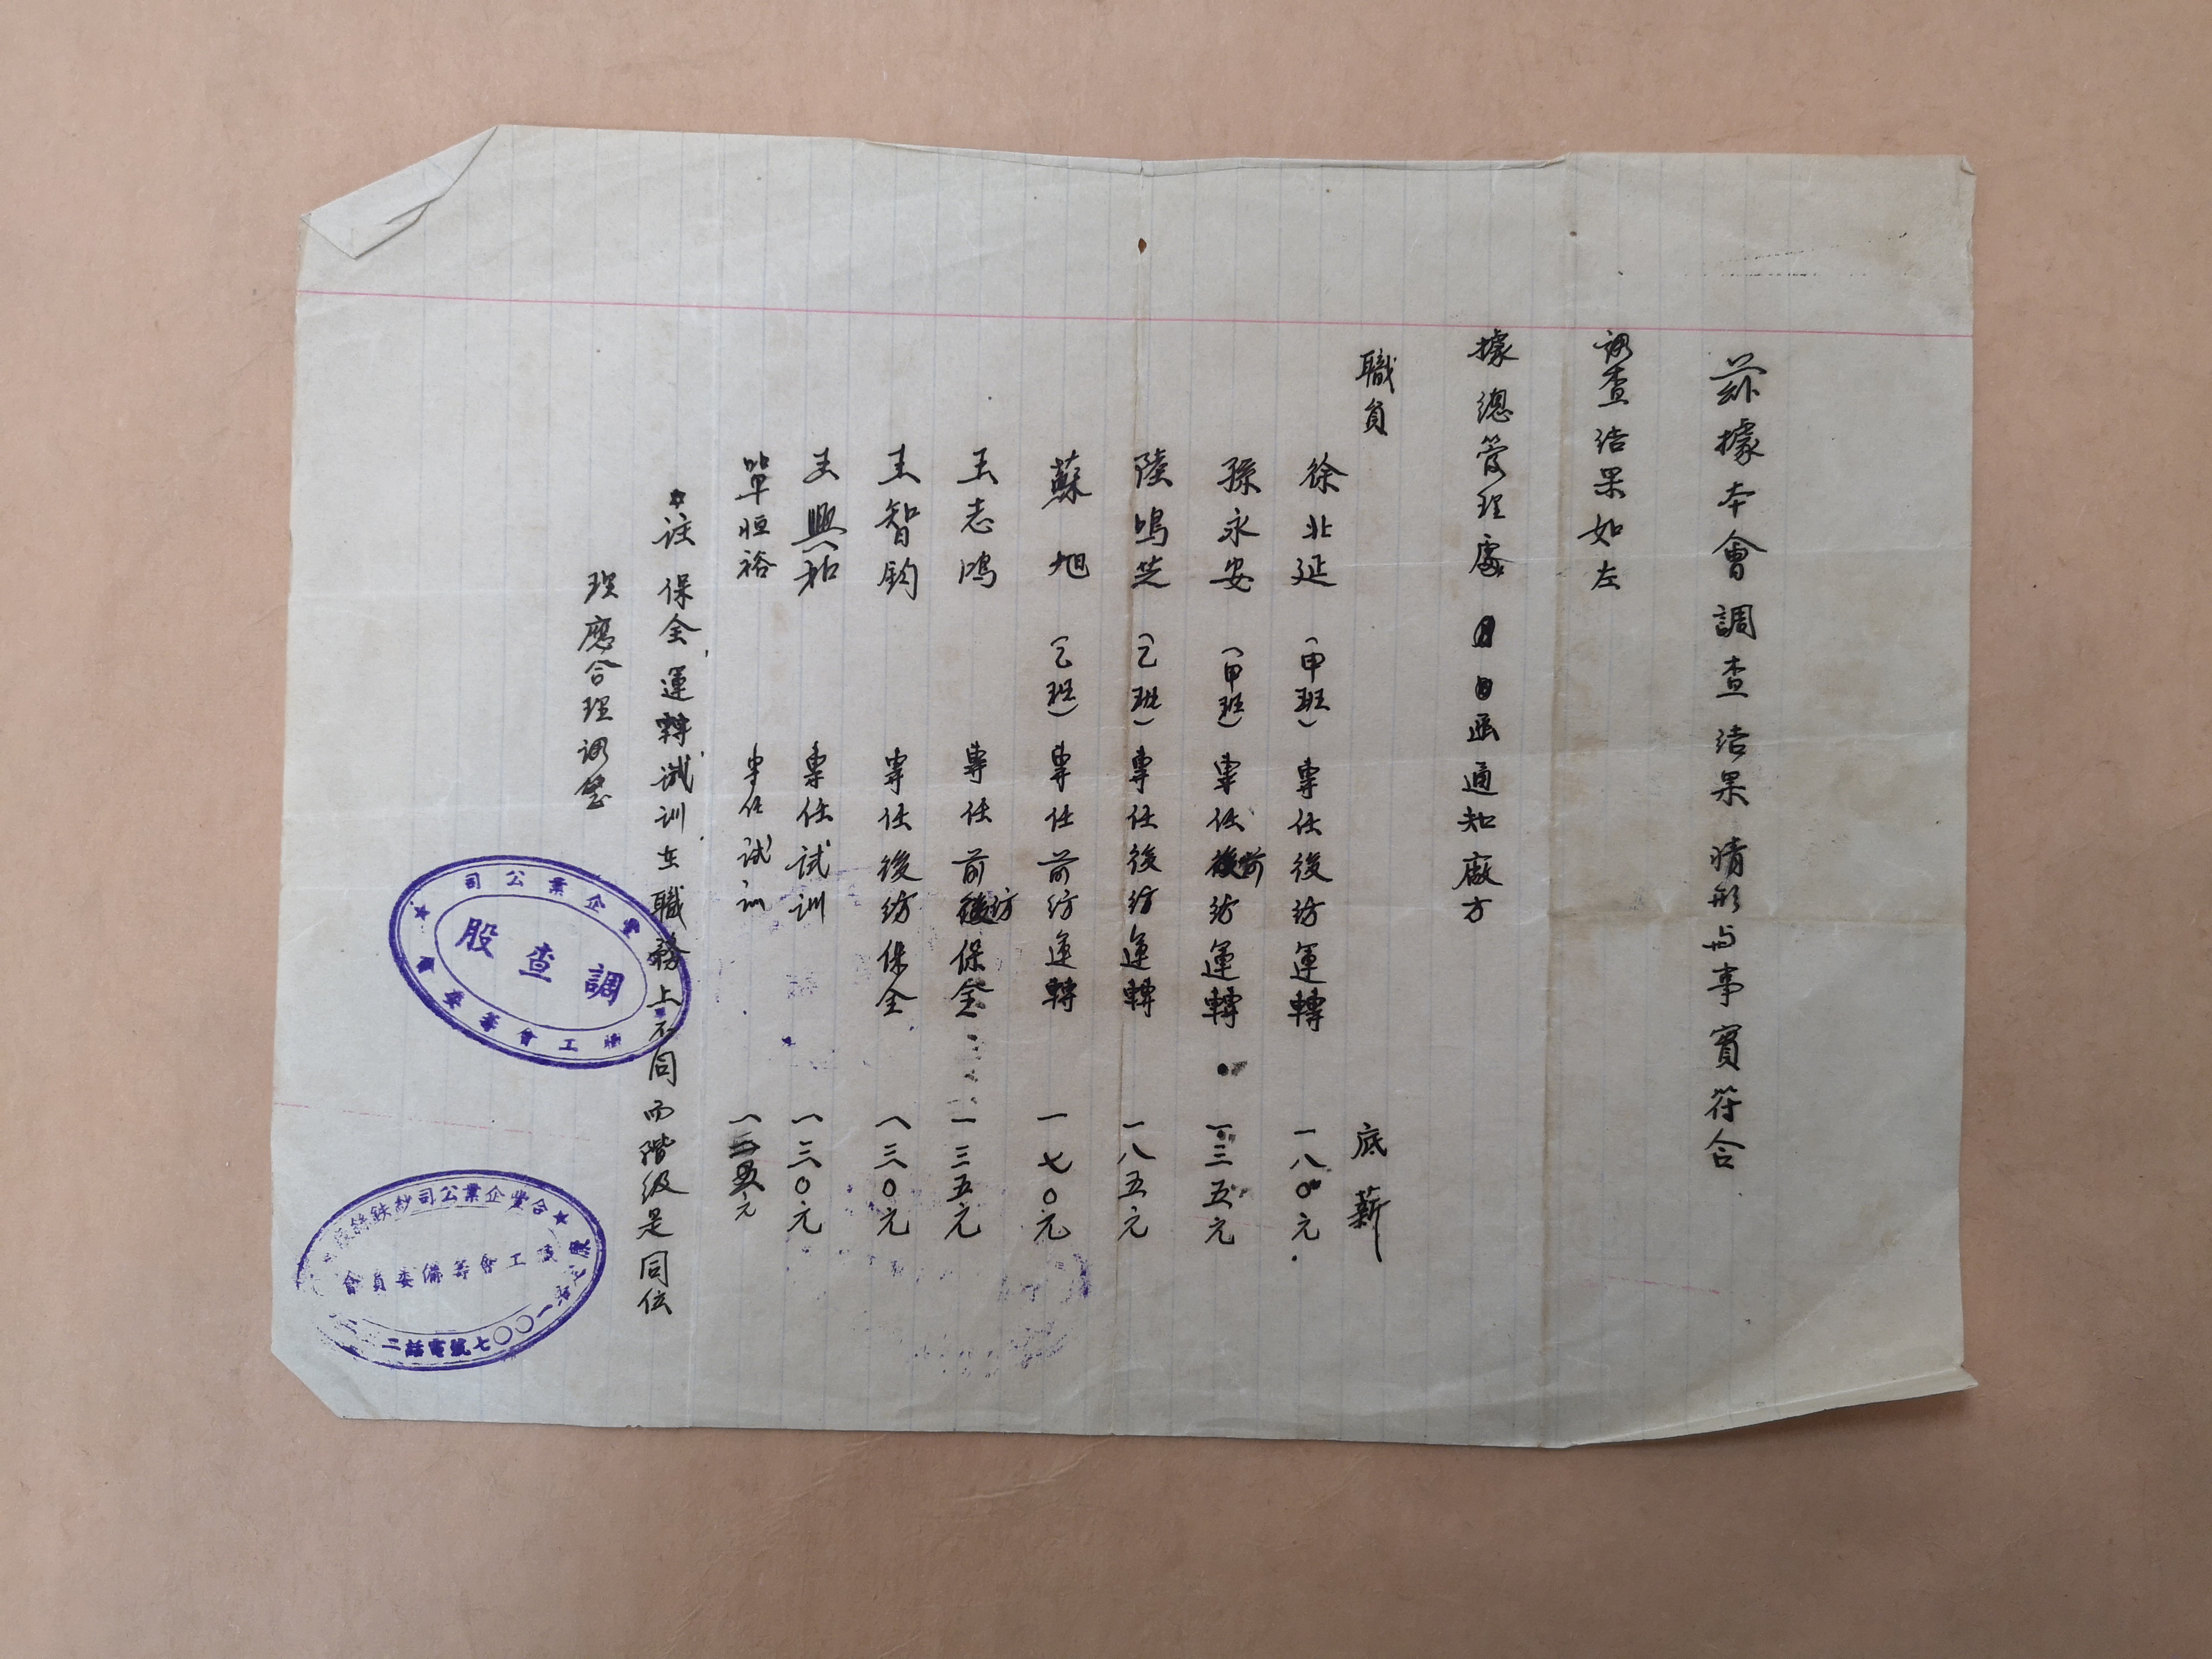 茲據本會調查結果情形与事實符合
調查結果如左
據總管理處 日 日函通知廠方
職員 底薪
徐北延 (甲班) 專任後紡運轉 一八〇元
孫永安 (甲班) 專任前紡運轉 一三五元
陸鳴芝 (乙班) 專任後紡運轉 一八五元
蘇旭 (乙班) 專任前紡運轉 一七〇元
王志鴻 專任前紡保全 一三五元
王智鈞 專任後紡保全 一三〇元
王興和 專任試訓 一三〇元
單恒裕 專任試訓 元
註 保全運轉試訓在職務上不同而階級是同位
理應合理調整
企業公司
調查股
工會籌委
合豐企業公司紗鉄絲
工會籌備委員會
電話二
一〇〇七號